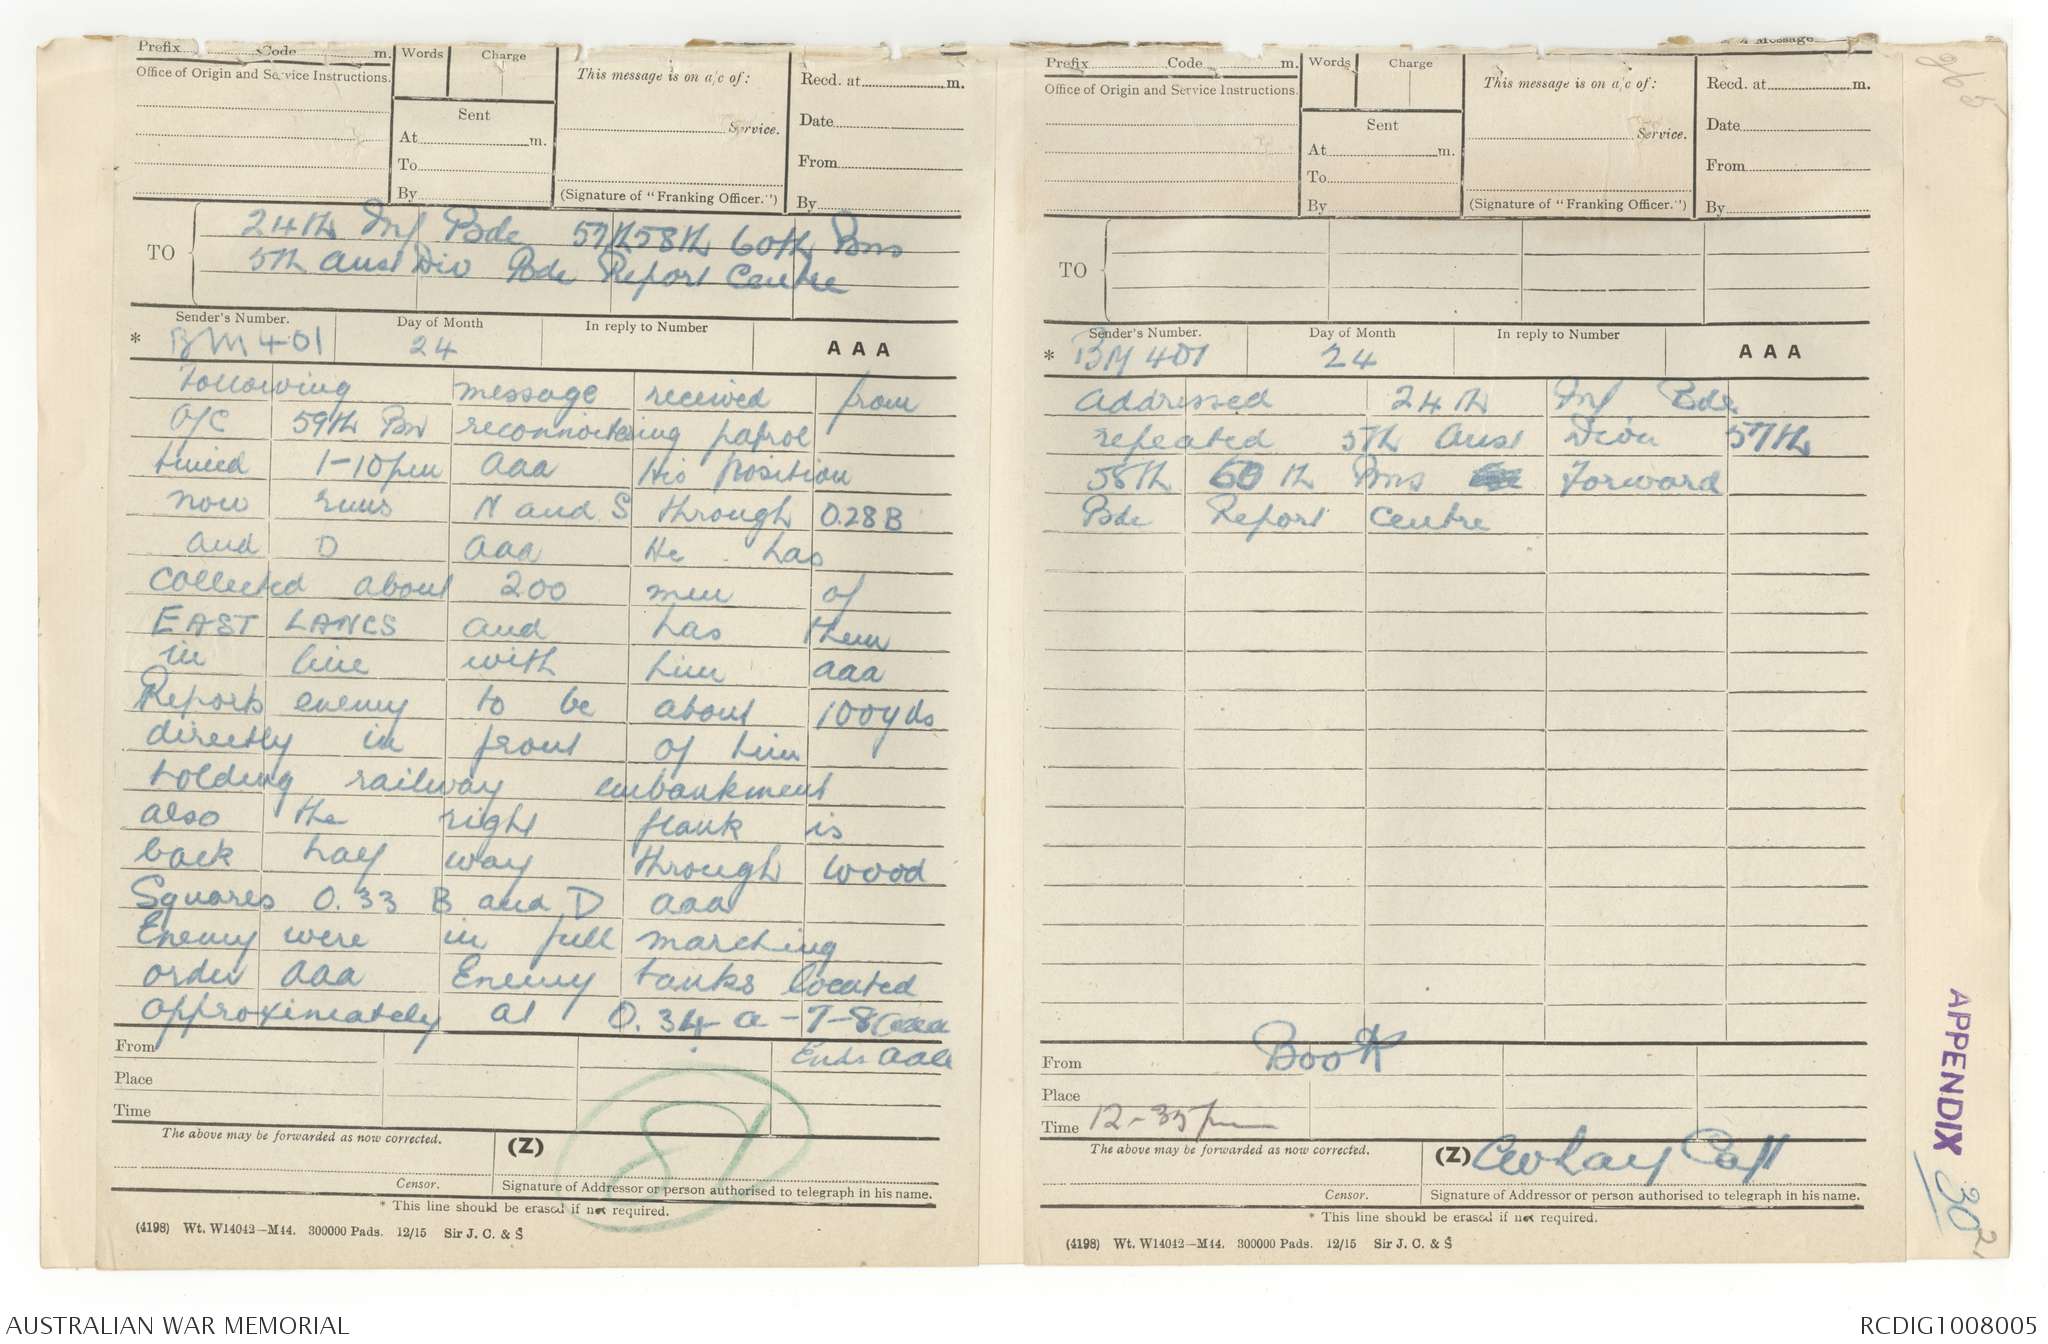 Prefix Code m.
Words Charge
Office of Origin and Service Instructions.
This message is on a/c of:
Recd. at m.
Sent
Service.
Date
At m.
From
To
By
(Signature of "Franking Officer.")
By
TO
24th Inf Bde 57th 58th 60th Bns
5th Aust Div Bde Report Centre
Sender's Number. Day of Month In reply to Number
* BM 401 24 AAA
Following message received from
O/C 59th Bn reconnoitering patrol
timed 1-10pm aaa His position
now runs N and S through O.28B
and D aaa He has
collected about 200 men of
EAST LANCS and has them
in line with him aaa
Reports enemy to be about 100yds
directly in front of him
holding railway embankment
also the right flank is
back half way through wood
Squares O.33 B and D aaa
Enemy were in full marching
order aaa Enemy tanks located
approximately at O.34 a-7-8 aaa
Ends aaa
From
Place
Time
The above may be forwarded as now corrected. (Z)
Censor. Signature of Addressor or person authorised to telegraph in his name.
* This line should be erased if not required.
(4198) Wt. W14042—M44. 300000 Pads. 12/15 Sir J. C. & S
Message
Prefix Code m.
Words Charge
Office of Origin and Service Instructions.
This message is on a/c of:
Recd. at m.
Sent
Service.
Date
At m.
From
To
By
(Signature of "Franking Officer.")
By
TO
Sender's Number. Day of Month In reply to Number
* BM 401 24 AAA
Addressed 24th Inf Bde
repeated 5th Aust Divn 57th
58th 60th Bns Forward
Bde Report Centre
From Book
Place
Time 12-35pm
The above may be forwarded as now corrected. (Z) Capt
Censor. Signature of Addressor or person authorised to telegraph in his name.
* This line should be erased if not required.
(4198) Wt. W14042—M44. 300000 Pads. 12/15 Sir J. C. & S
APPENDIX 30
AUSTRALIAN WAR MEMORIAL
RCDIG1008005